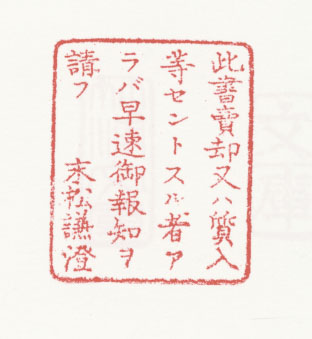 此書賣却又ハ質入
等セントスル者ア
ラバ早速御報知ヲ
請フ　末松謙澄